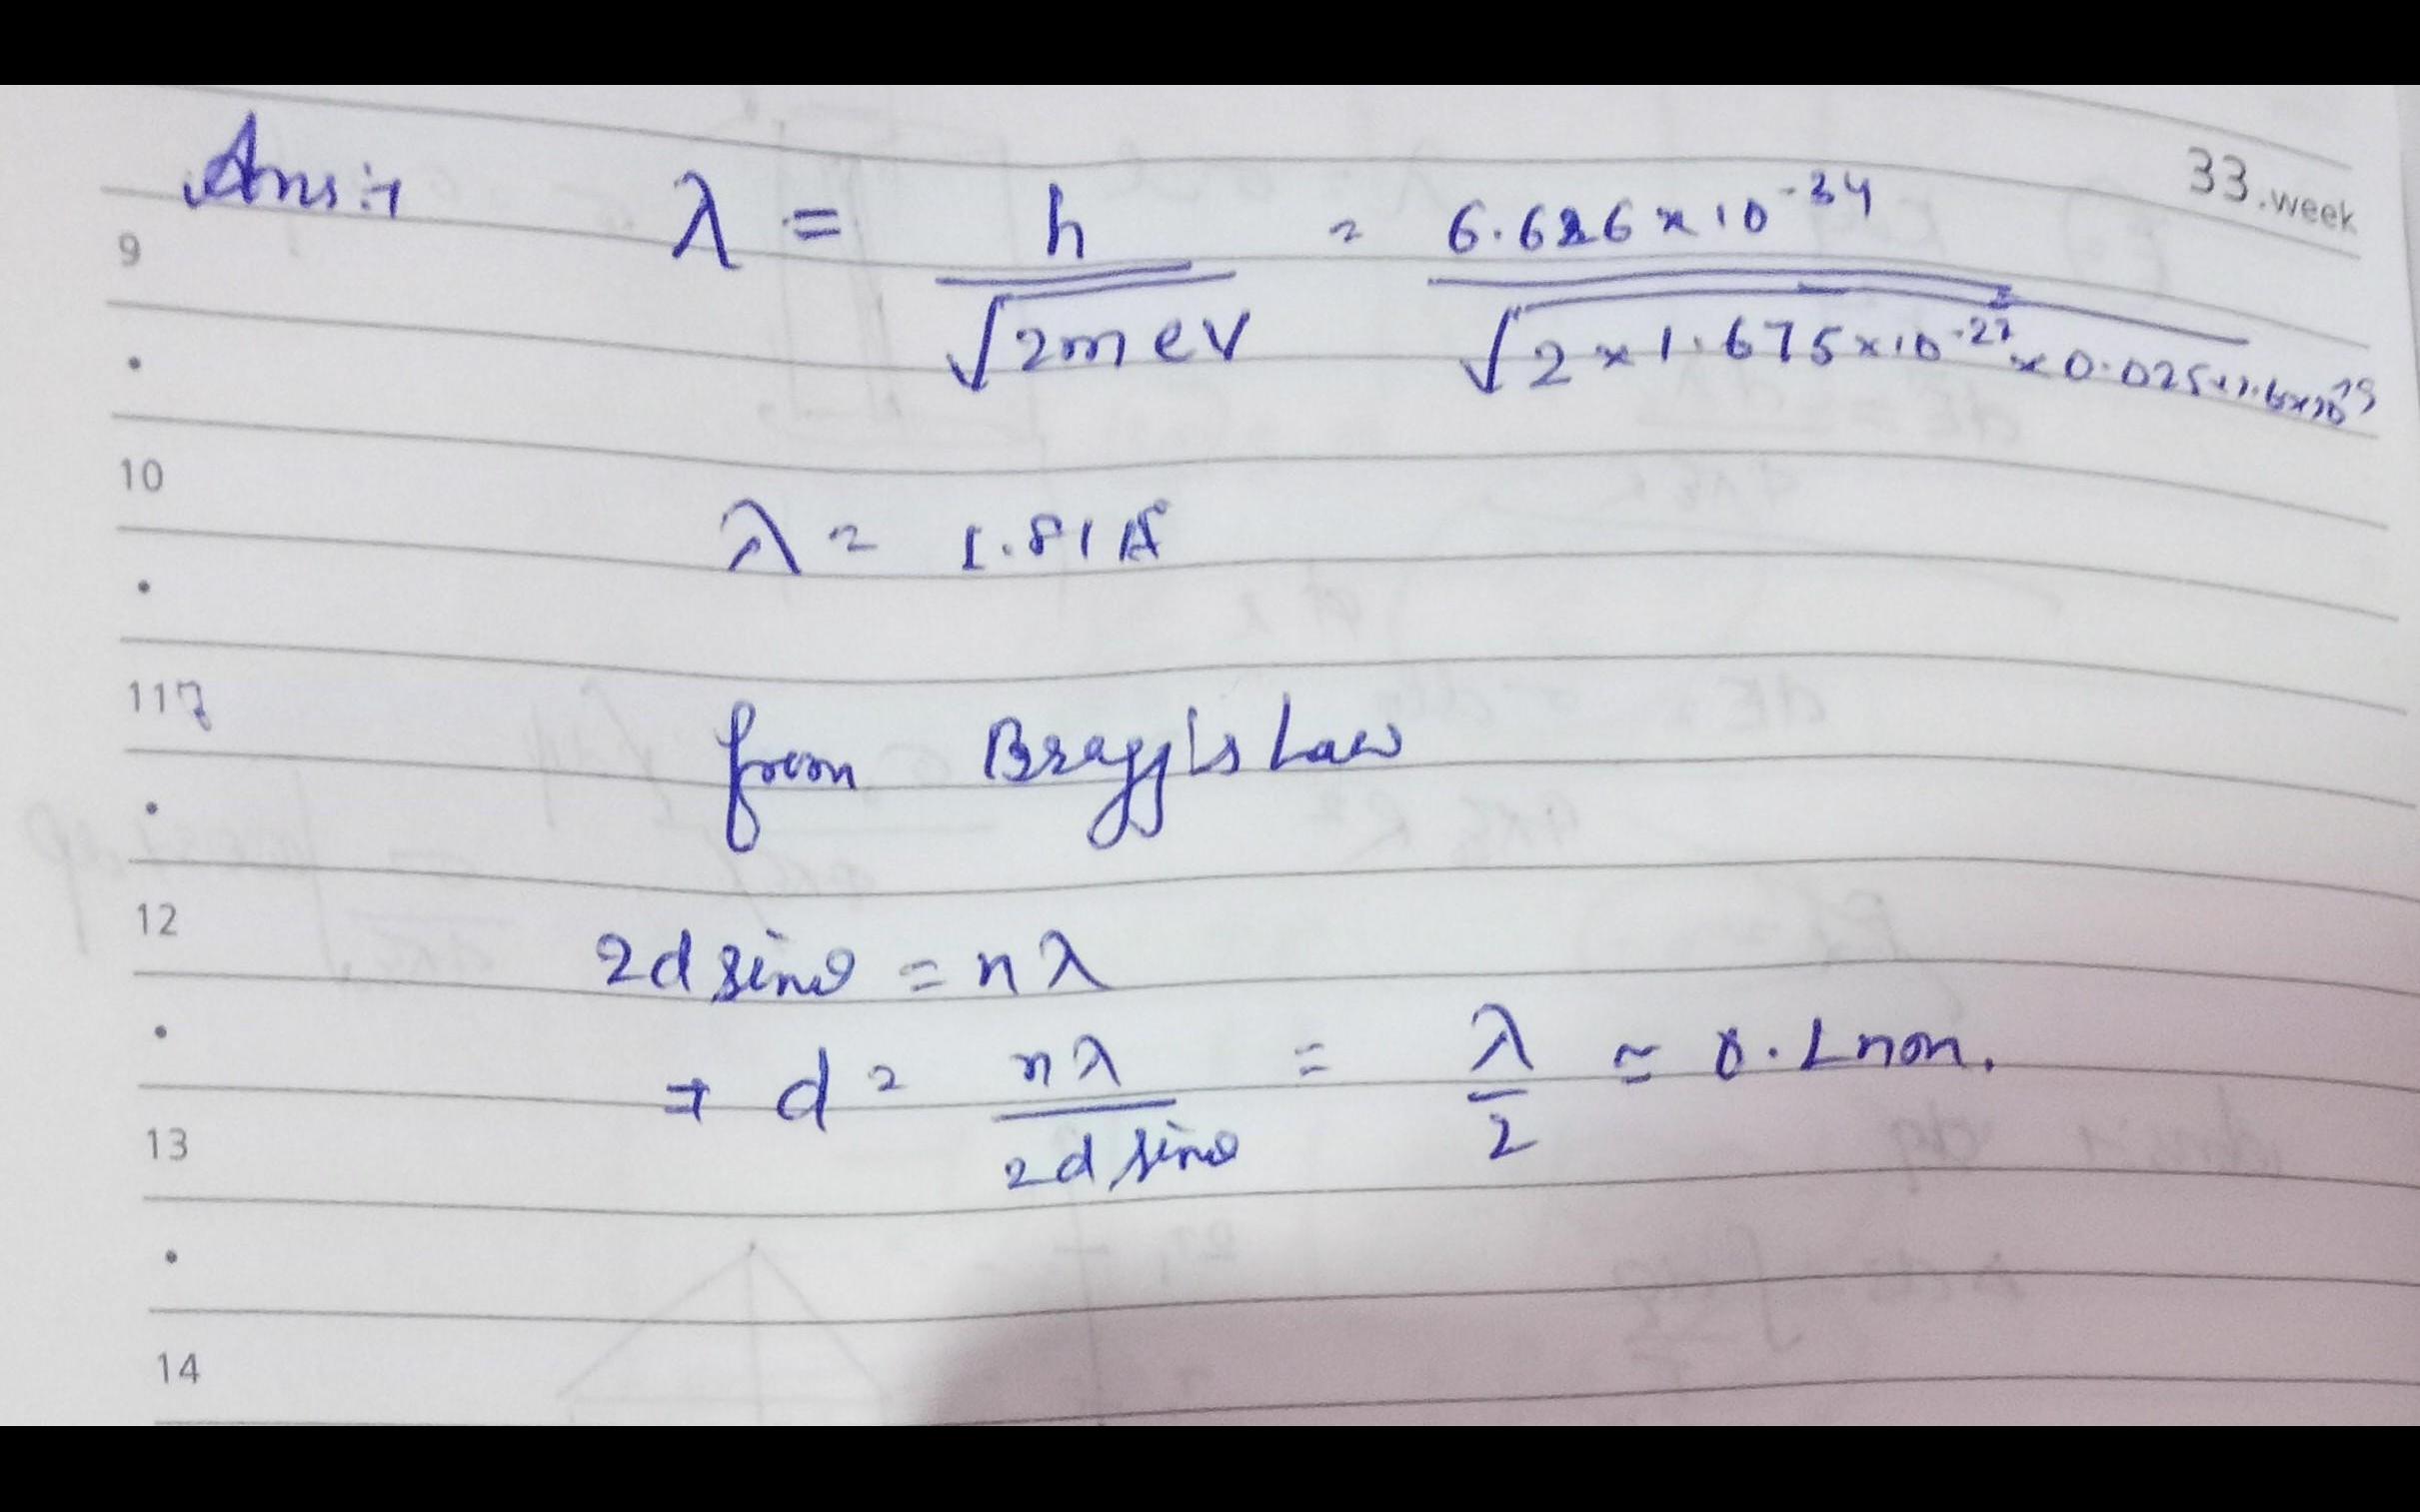 33.week
Ans:→ λ = h / √2meV = 6.626×10⁻³⁴ / √2×1.675×10⁻²⁷×0.025×1.6×10⁻¹⁹
9
10
λ = 1.81A°
11
from Bragg's Law
12
2d sinθ = nλ
⇒ d = nλ / 2d sinθ = λ / 2 ≃ 0.1nm.
13
14